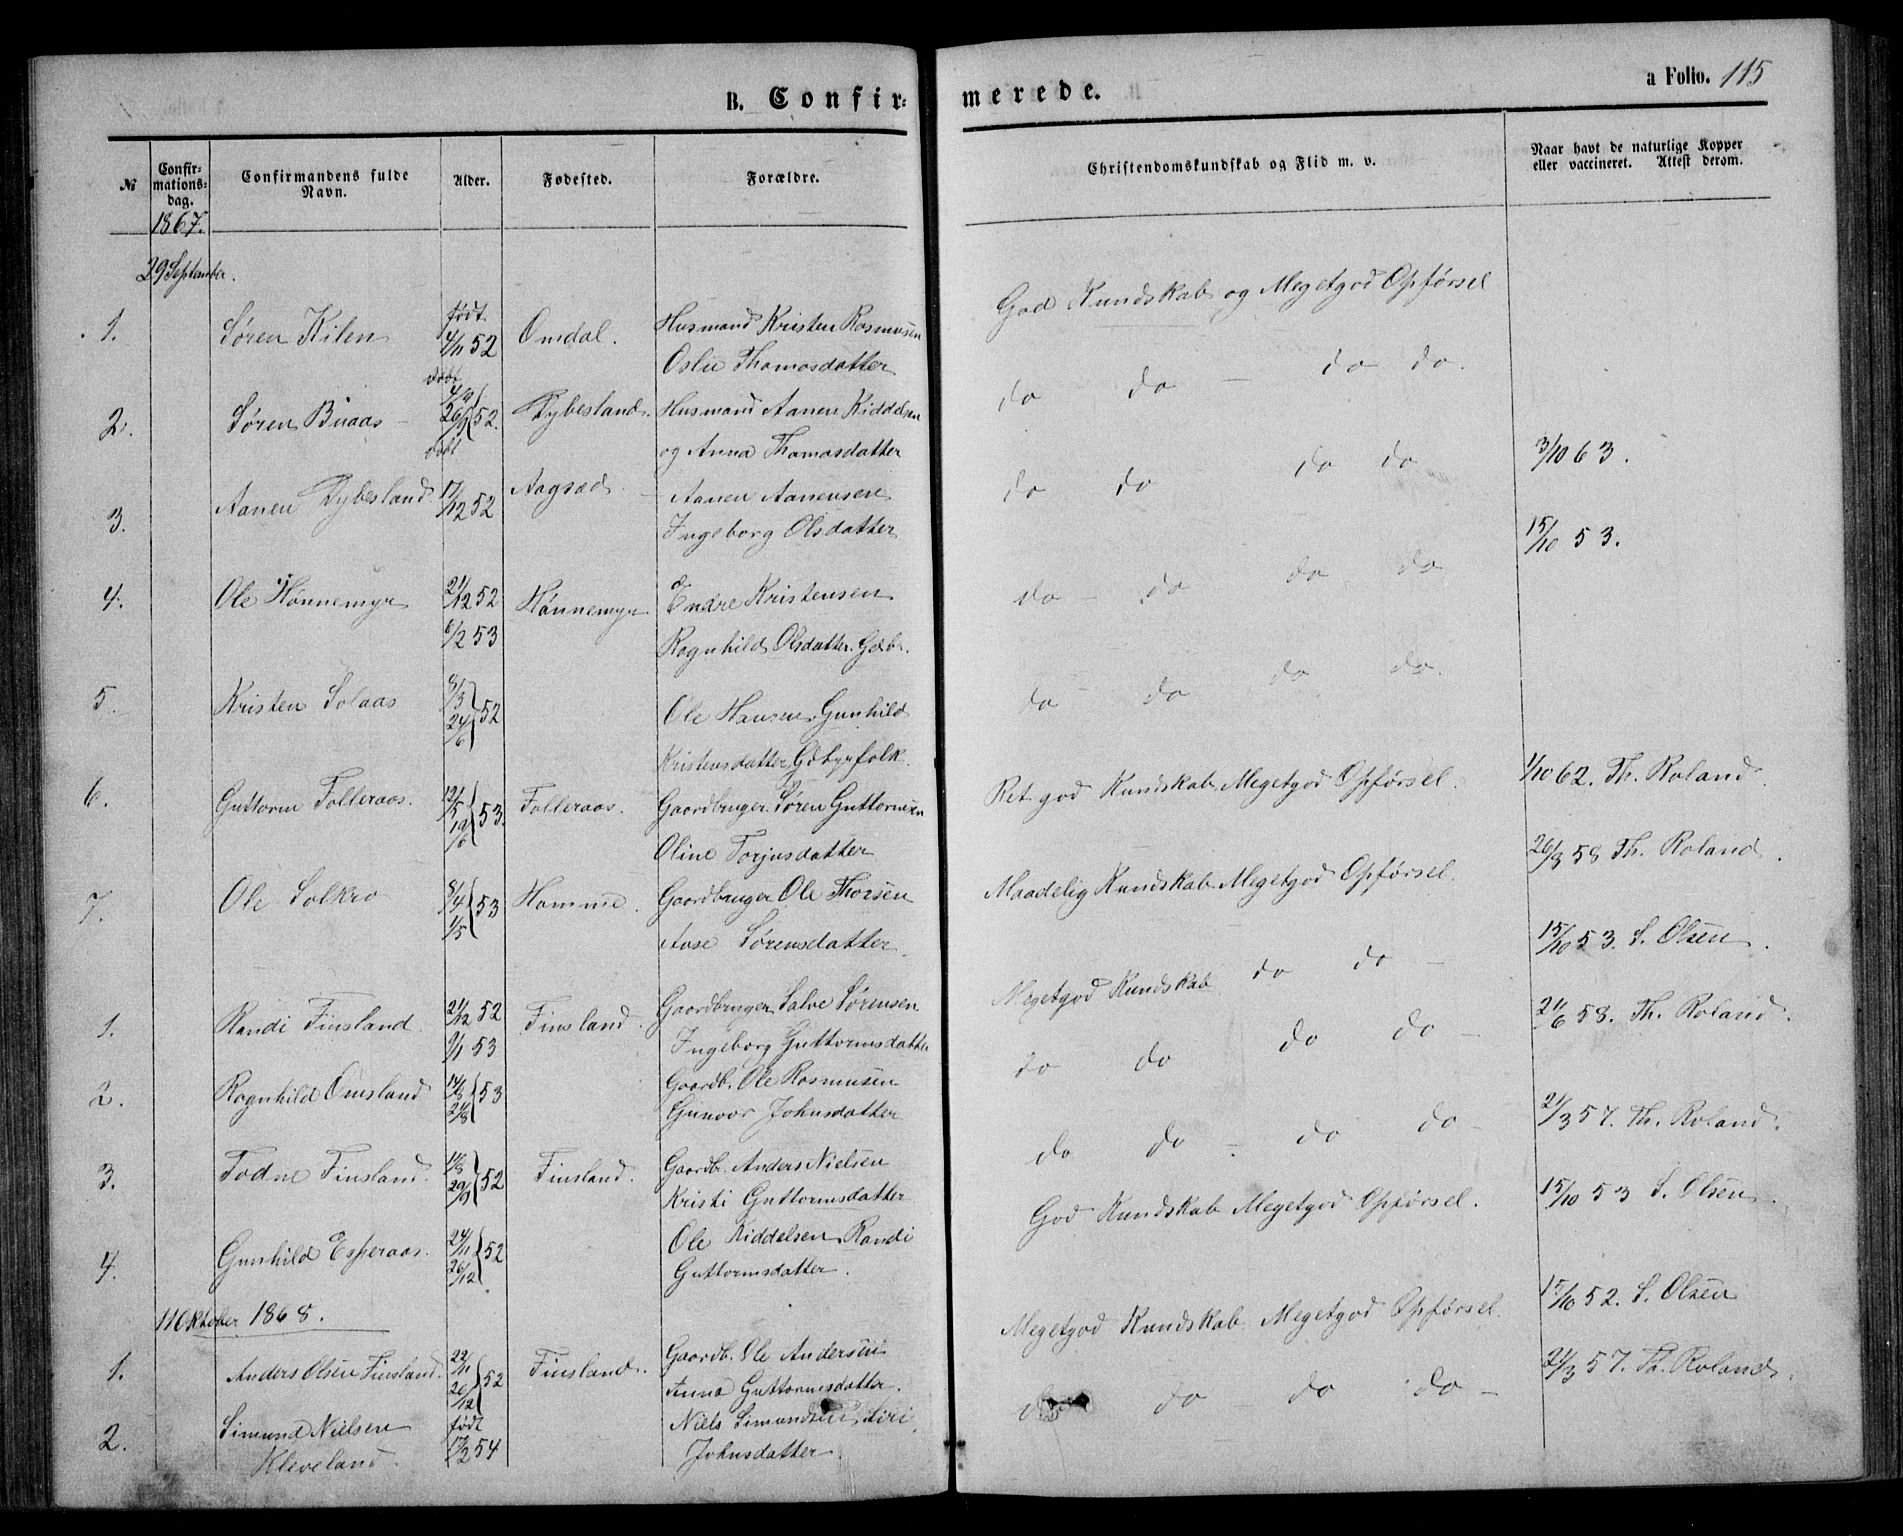 B. Confir= merede. a Folio. 115
№ Confir-mations-dag. Confirmandens fulde Navn. Alder. Fødested. Forældre. Christendomskundskab og Flid m. v. Naar havt de naturlige Kopper eller vaccineret. Attest derom.
1867.
29 September.
1. Søren Kilen født 4/11 52 Omdal. Husmand Kristen Rasmusen God Kundskab og Megetgod Opførsel
Thomasdatter
2. Søren Buaas 26/9 52. Dybesland. Husmand Aanen Kiddelsen do do — do do.
og Anna Thomasdatter
3. Aanen Dybesland. 17/12 52 Aagsæd. Aanen Aanensen do do do do 3/10 63.
Ingeborg Olsdatter
4. Ole Hønnemyr 21/12 52 Hønnemyr Endre Kristensen do — do do do 15/10 53.
6/2 53 Ragnhild Olsdatter. Gdbr.
5. Kristen Solaas 8/3 24/6 52 Ole Hansen, Gunhild do — do do do.
Kristensdatter, Gdbrfolk.
6. Guttorm Tolleraas. 12/5 19/6 53. Tolleraas. Gaardbruger Søren Guttormsen Ret god Kundskab. Megetgod Opførsel. 1/10 62. Th. Roland
Oline Torjusdatter
7. Ole Solkro 8/4 1/5 53 Homme. Gaardbruger Ole Thorsen Maadelig Kundskab. Megetgod Opførsel. 26/3 58 Th. Roland.
Aase Sørensdatter
1. Randi Finsland. 21/12 52 Finsland. Gaardbruger Salve Sørensen Megetgod Kundskab do do — 15/10 53. S. Olsen.
9/1 53 Ingeborg Guttormsdatter
2. Ragnhild Omsland 53 Gaardb. Ole Rasmusen do do do do — 21/6 58. Th. Roland.
Gunvor Johnsdatter
3. Todne Finsland. 52 Finsland. Gaardb. Anders Nielsen do do — do do — 21/3 57. Th. Roland.
Kristi Guttormsdatter
4. Gunhild Esperaas. 24/11 26/12 52 Ole Kiddelsen Randi God Kundskab Megetgod Opførsel. 15/10 53 S. Olsen.
Guttormsdatter.
11 Oktober 1868.
1. Anders Olsen Finsland. 22/11 26/12 52 Finsland. Gaardb. Ole Andersen Megetgod Kundskab. Megetgod Opførsel 15/10 52. S. Olsen
Anna Guttormsdatter.
2. Simund Nielsen født Niels Simundsen, Siri do do do do — 21/3 57. Th. Roland.
Kleveland. 17/2 54 Johnsdatter.